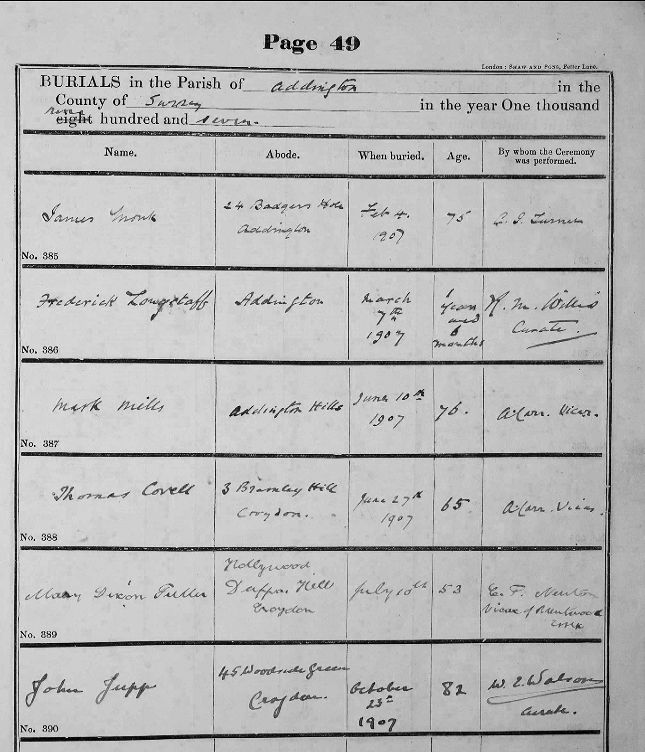 Page 49
London: SHAW AND SONS, Fetter Lane.
BURIALS in the Parish of Addington in the
County of Surrey in the year One thousand
nine
eight hundred and seven.
Name. Abode. When buried. Age. By whom the Ceremony was performed.
James Monk
24 Badgers Hole
Addington
Feb 4.
1907
75
No. 385
Frederick Longstaff
Addington
March
7th
1907
1
Year
and
6
months
H. M. Willis
Curate.
No. 386
Mark Mills
Addington Hills
June 10th
1907
76.
A. Carr. Vicar.
No. 387
Thomas Covell
3 Bramley Hill
Croydon.
June 27th
1907
65.
A. Carr. Vicar.
No. 388
Mary Dixon Fuller
Hollywood
Duppas Hill
Croydon
July 10th
53
E. F. Newton
Vicar of Brentwood
Essex
No. 389
John Jupp
45 Woodside Green
Croydon.
October
23rd
1907
82
W. E. Watson
Curate.
No. 390